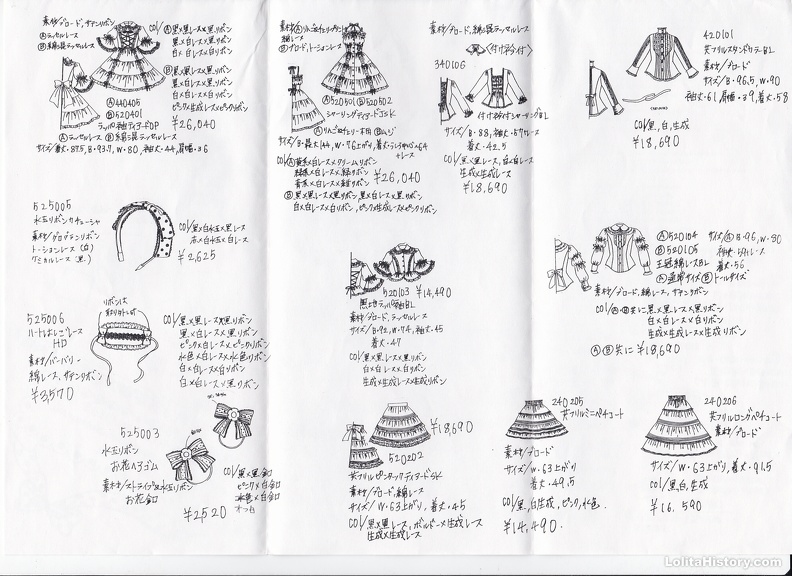 素材/ブロード、サテンリボン
Ⓐラッセルレース
Ⓑ綿混ラッセルレース
COL/Ⓐ黒×黒レース×黒リボン
黒×白レース×黒リボン
白×白レース×白リボン
Ⓑ黒×黒レース×黒リボン
黒×白レース×黒リボン
白×白レース×白リボン
ピンク×生成レース×ピンクリボン
¥26,040
Ⓐ440405
Ⓑ520401
ラッパ袖ティアードOP
Ⓐラッセルレース Ⓑ綿混ラッセルレース
サイズ/着丈・87.5、B・93.7、W・80、袖丈・44、肩幅・36
525005
水玉リボンカチューシャ
素材/グログランリボン
トーションレース(白)
ケミカルレース(黒)
COL/黒×白水玉×黒レース
赤×白水玉×白レース
¥2,625
リボンは
525006
ハートはしごレース
HD
素材/バーバリー
綿レース、サテンリボン
¥3,570
COL/黒×黒レース×黒リボン
黒×白レース×黒リボン
ピンク×白レース×ピンクリボン
水色×白レース×水色リボン
白×白レース×白リボン
白×黒レース×黒リボン
525003
水玉リボン
お花ヘアゴム
素材/ストライプ&水玉リボン
お花釦
¥2,520
COL/黒×黒釦
ピンク×白釦
水色×白釦
綿レース
Ⓑブロード、トーションレース
Ⓐ520501 Ⓑ520502
シャーリングティアードJSK
¥26,040
Ⓑ黒×黒レース×黒リボン、黒×白レース×黒リボン
白×白レース×白リボン、ピンク×生成レース×ピンクリボン
素材/ブロード、綿混ラッセルレース
〈付け衿付〉
340106
付け衿付シャーリングBL
サイズ/B・88、袖丈・57+レース
着丈・42.5
COL/黒×黒レース、白×白レース
生成×生成レース
¥18,690
520103 ¥14,490
黒地ラッパ袖BL
素材/ブロード、ラッセルレース
サイズ/B・92、W・74、袖丈・45
着丈・47
COL/黒×黒レース×黒リボン
白×白レース×白リボン
生成×生成レース×生成リボン
¥18,690
520202
共フリルピンタックティアードSK
素材/ブロード、綿レース
サイズ/W・63上がり、着丈・45
COL/黒×黒レース、ボルドー×生成レース
生成×生成レース
420101
共フリルスタンドカラーBL
素材/ブロード
サイズ/B・96.5、W・90
袖丈・61、肩幅・39、着丈・58
COL/黒、白、生成
¥18,690
Ⓐ520104
Ⓑ520105
王冠綿レースBL
サイズⒶB・96、W・80
着丈・56
素材/ブロード、綿レース、サテンリボン
白×白レース×白リボン
生成×生成レース×生成リボン
ⒶⒷ共に¥18,690
240205
共フリルミニペチコート
素材/ブロード
サイズ/W・63上がり
着丈・49.5
COL/黒、白、生成、ピンク、水色
¥14,490.
240206
共フリルロングペチコート
素材/ブロード
サイズ/W・63上がり、着丈・91.5
COL/黒、白、生成
¥16,590
LolitaHistory.com